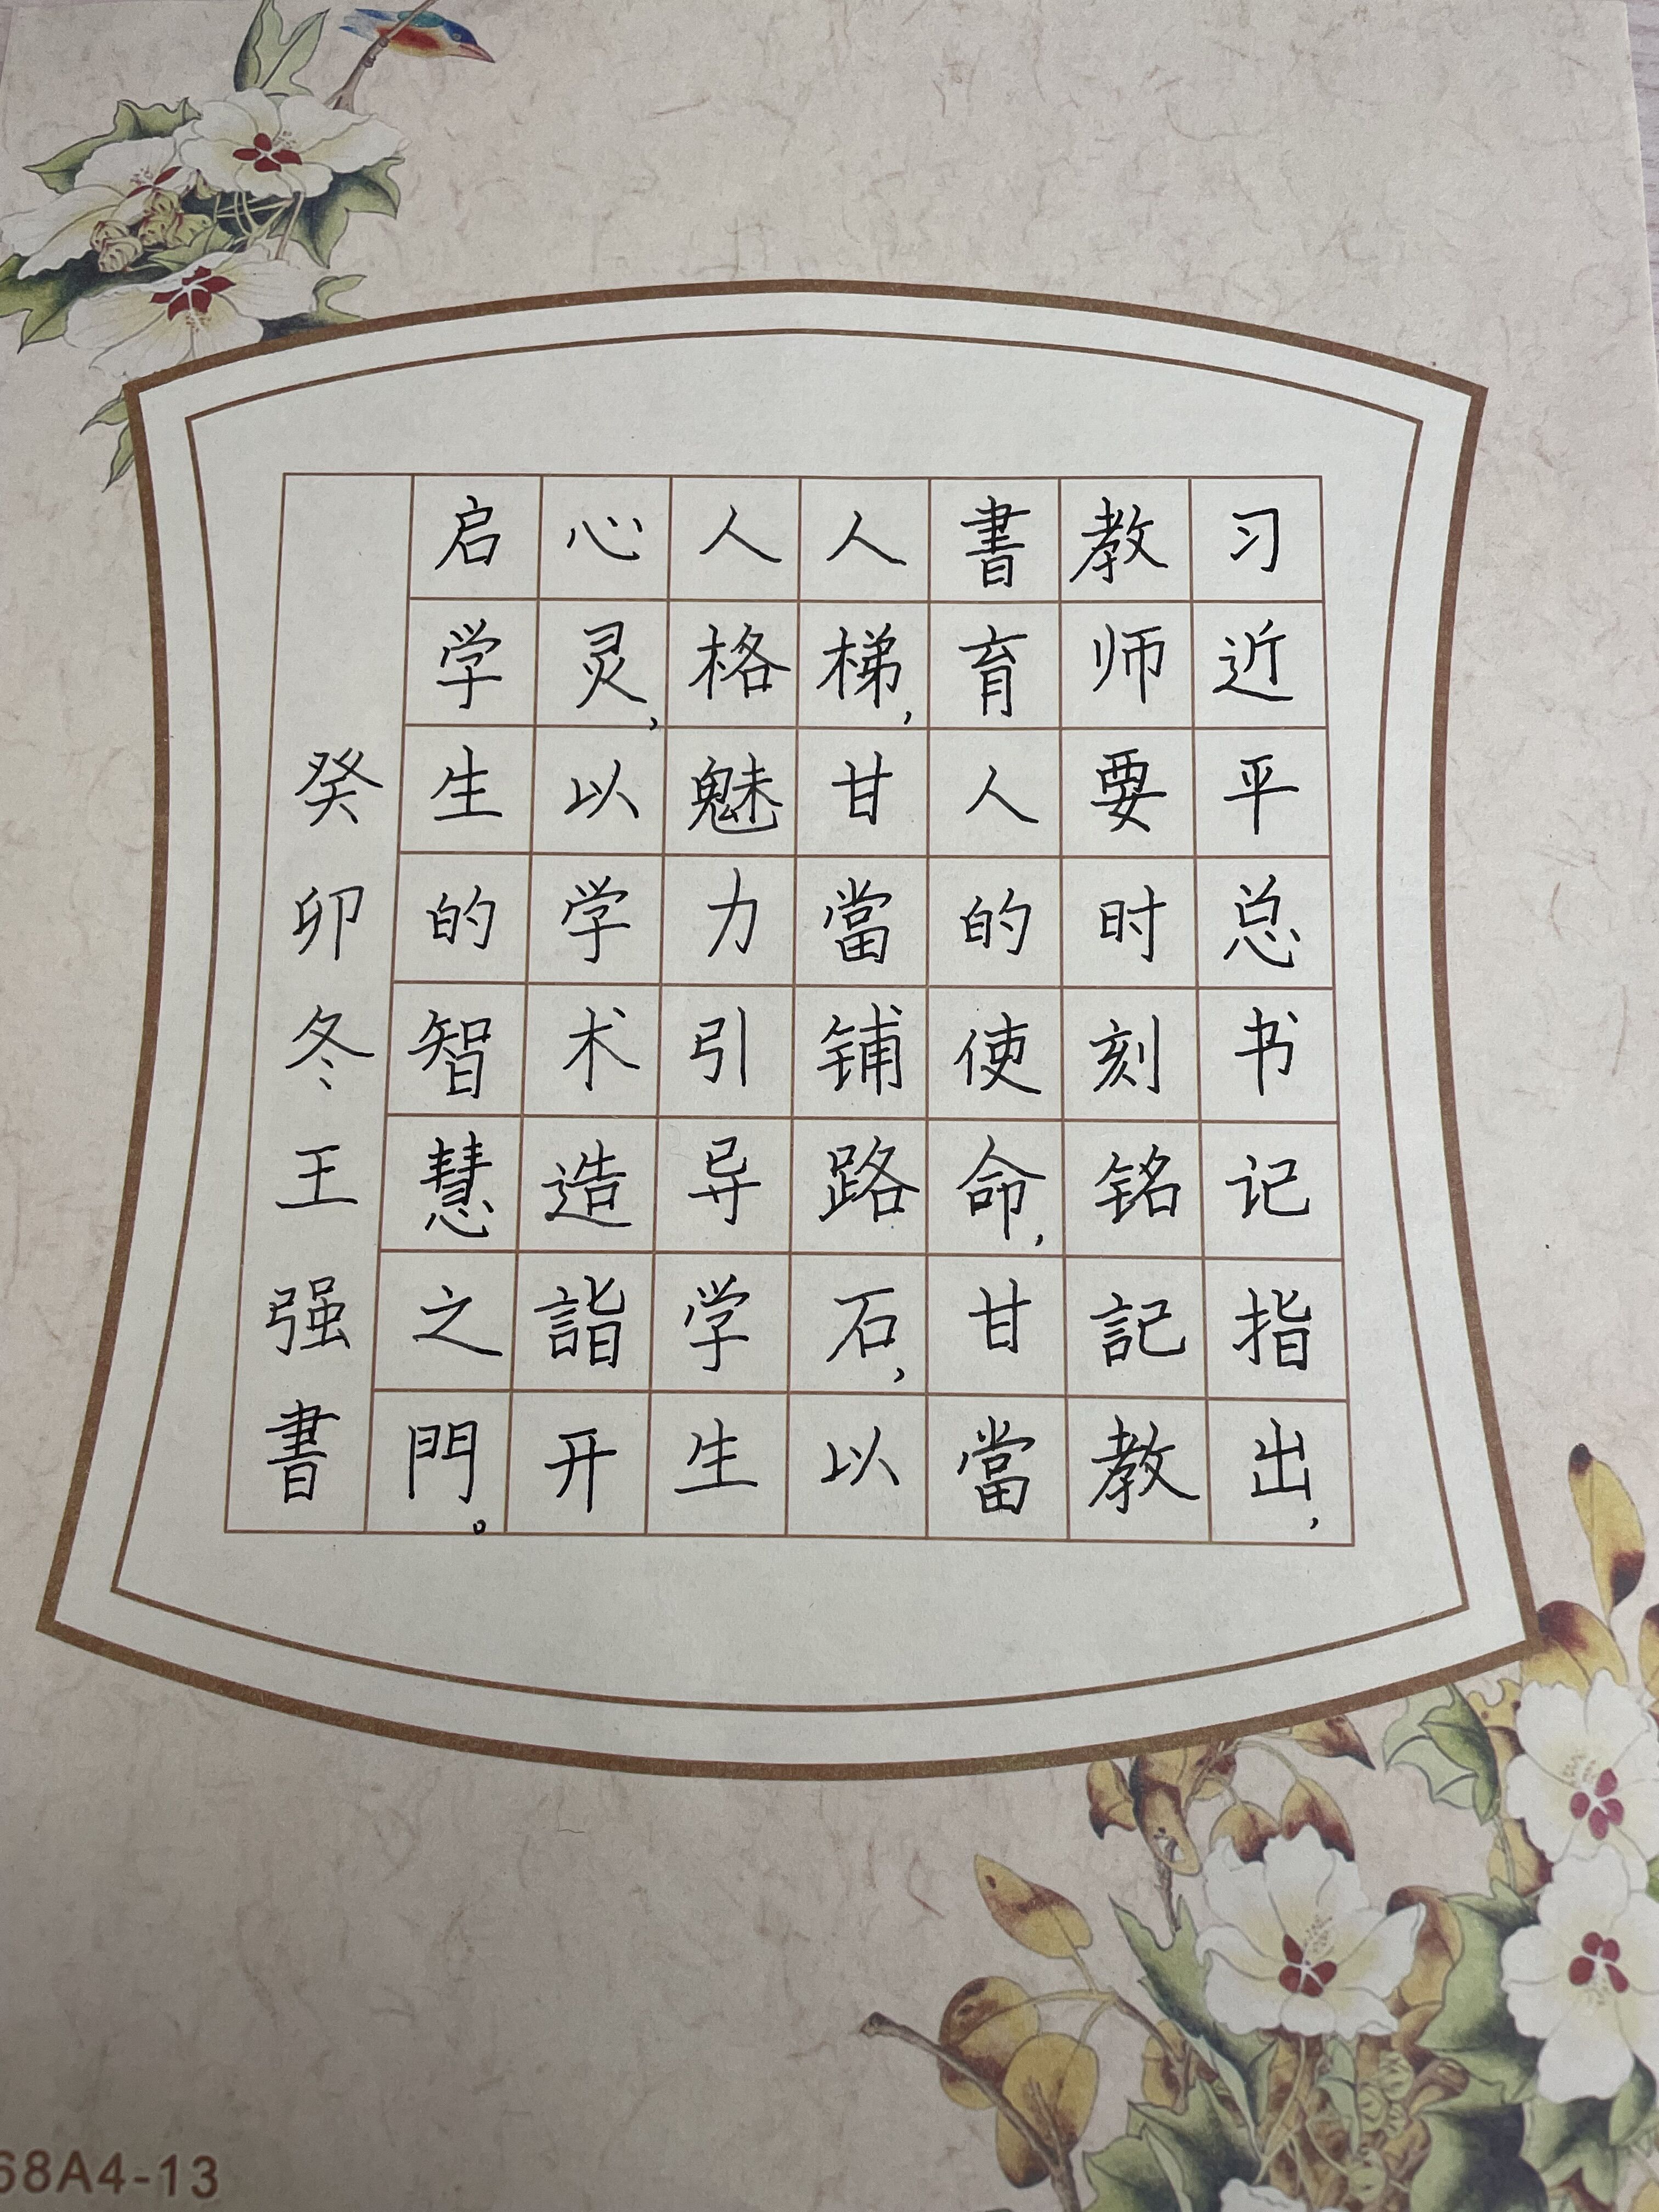 习近平总书记指出，
教师要时刻铭記教
書育人的使命，甘當
人梯，甘當铺路石，以
人格魅力引导学生
心灵，以学术造詣开
启学生的智慧之門。
癸卯冬王强書
68A4-13